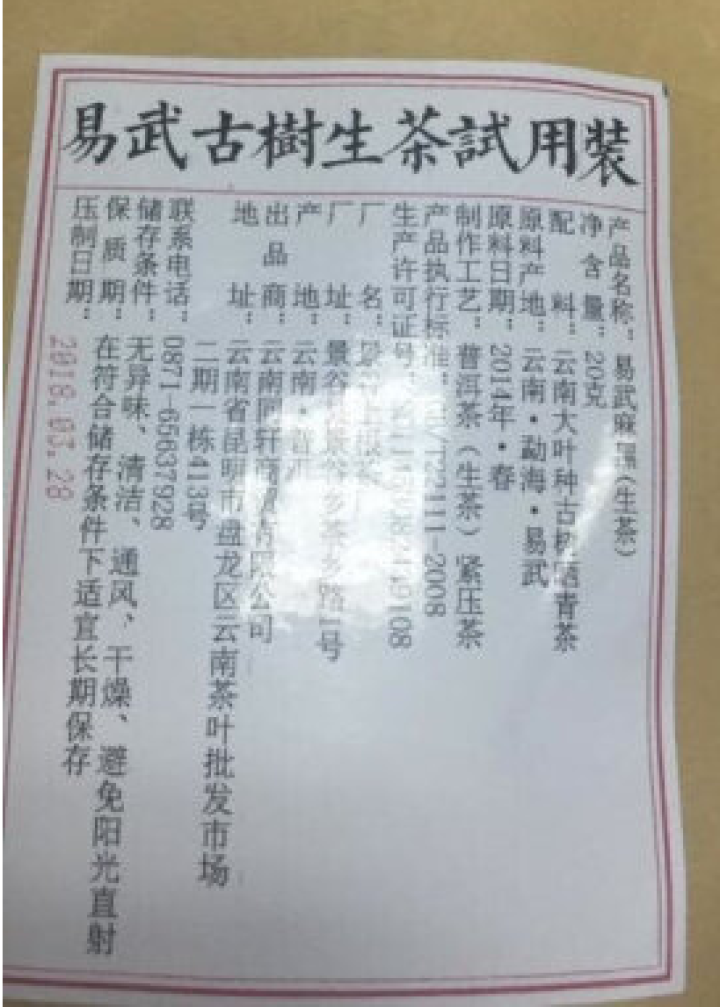 易武古樹生茶試用装
产品名称：易武麻黑（生茶）
净含量：20克
配料：云南大叶种古树晒青茶
原料产地：云南·勐海·易武
原料日期：2014年·春
制作工艺：普洱茶（生茶）紧压茶
产品执行标准：GB/T22111-2008
生产许可证号：
厂名：景谷
厂址：景谷 景谷乡茶乡路1号
产地：云南·普洱
出品商：云南同轩商贸有限公司
地址：云南省昆明市盘龙区云南茶叶批发市场
二期一栋413号
联系电话：0871-65637928
储存条件：无异味、清洁、通风、干燥、避免阳光直射
保质期：在符合储存条件下适宜长期保存
压制日期：2018.03.28